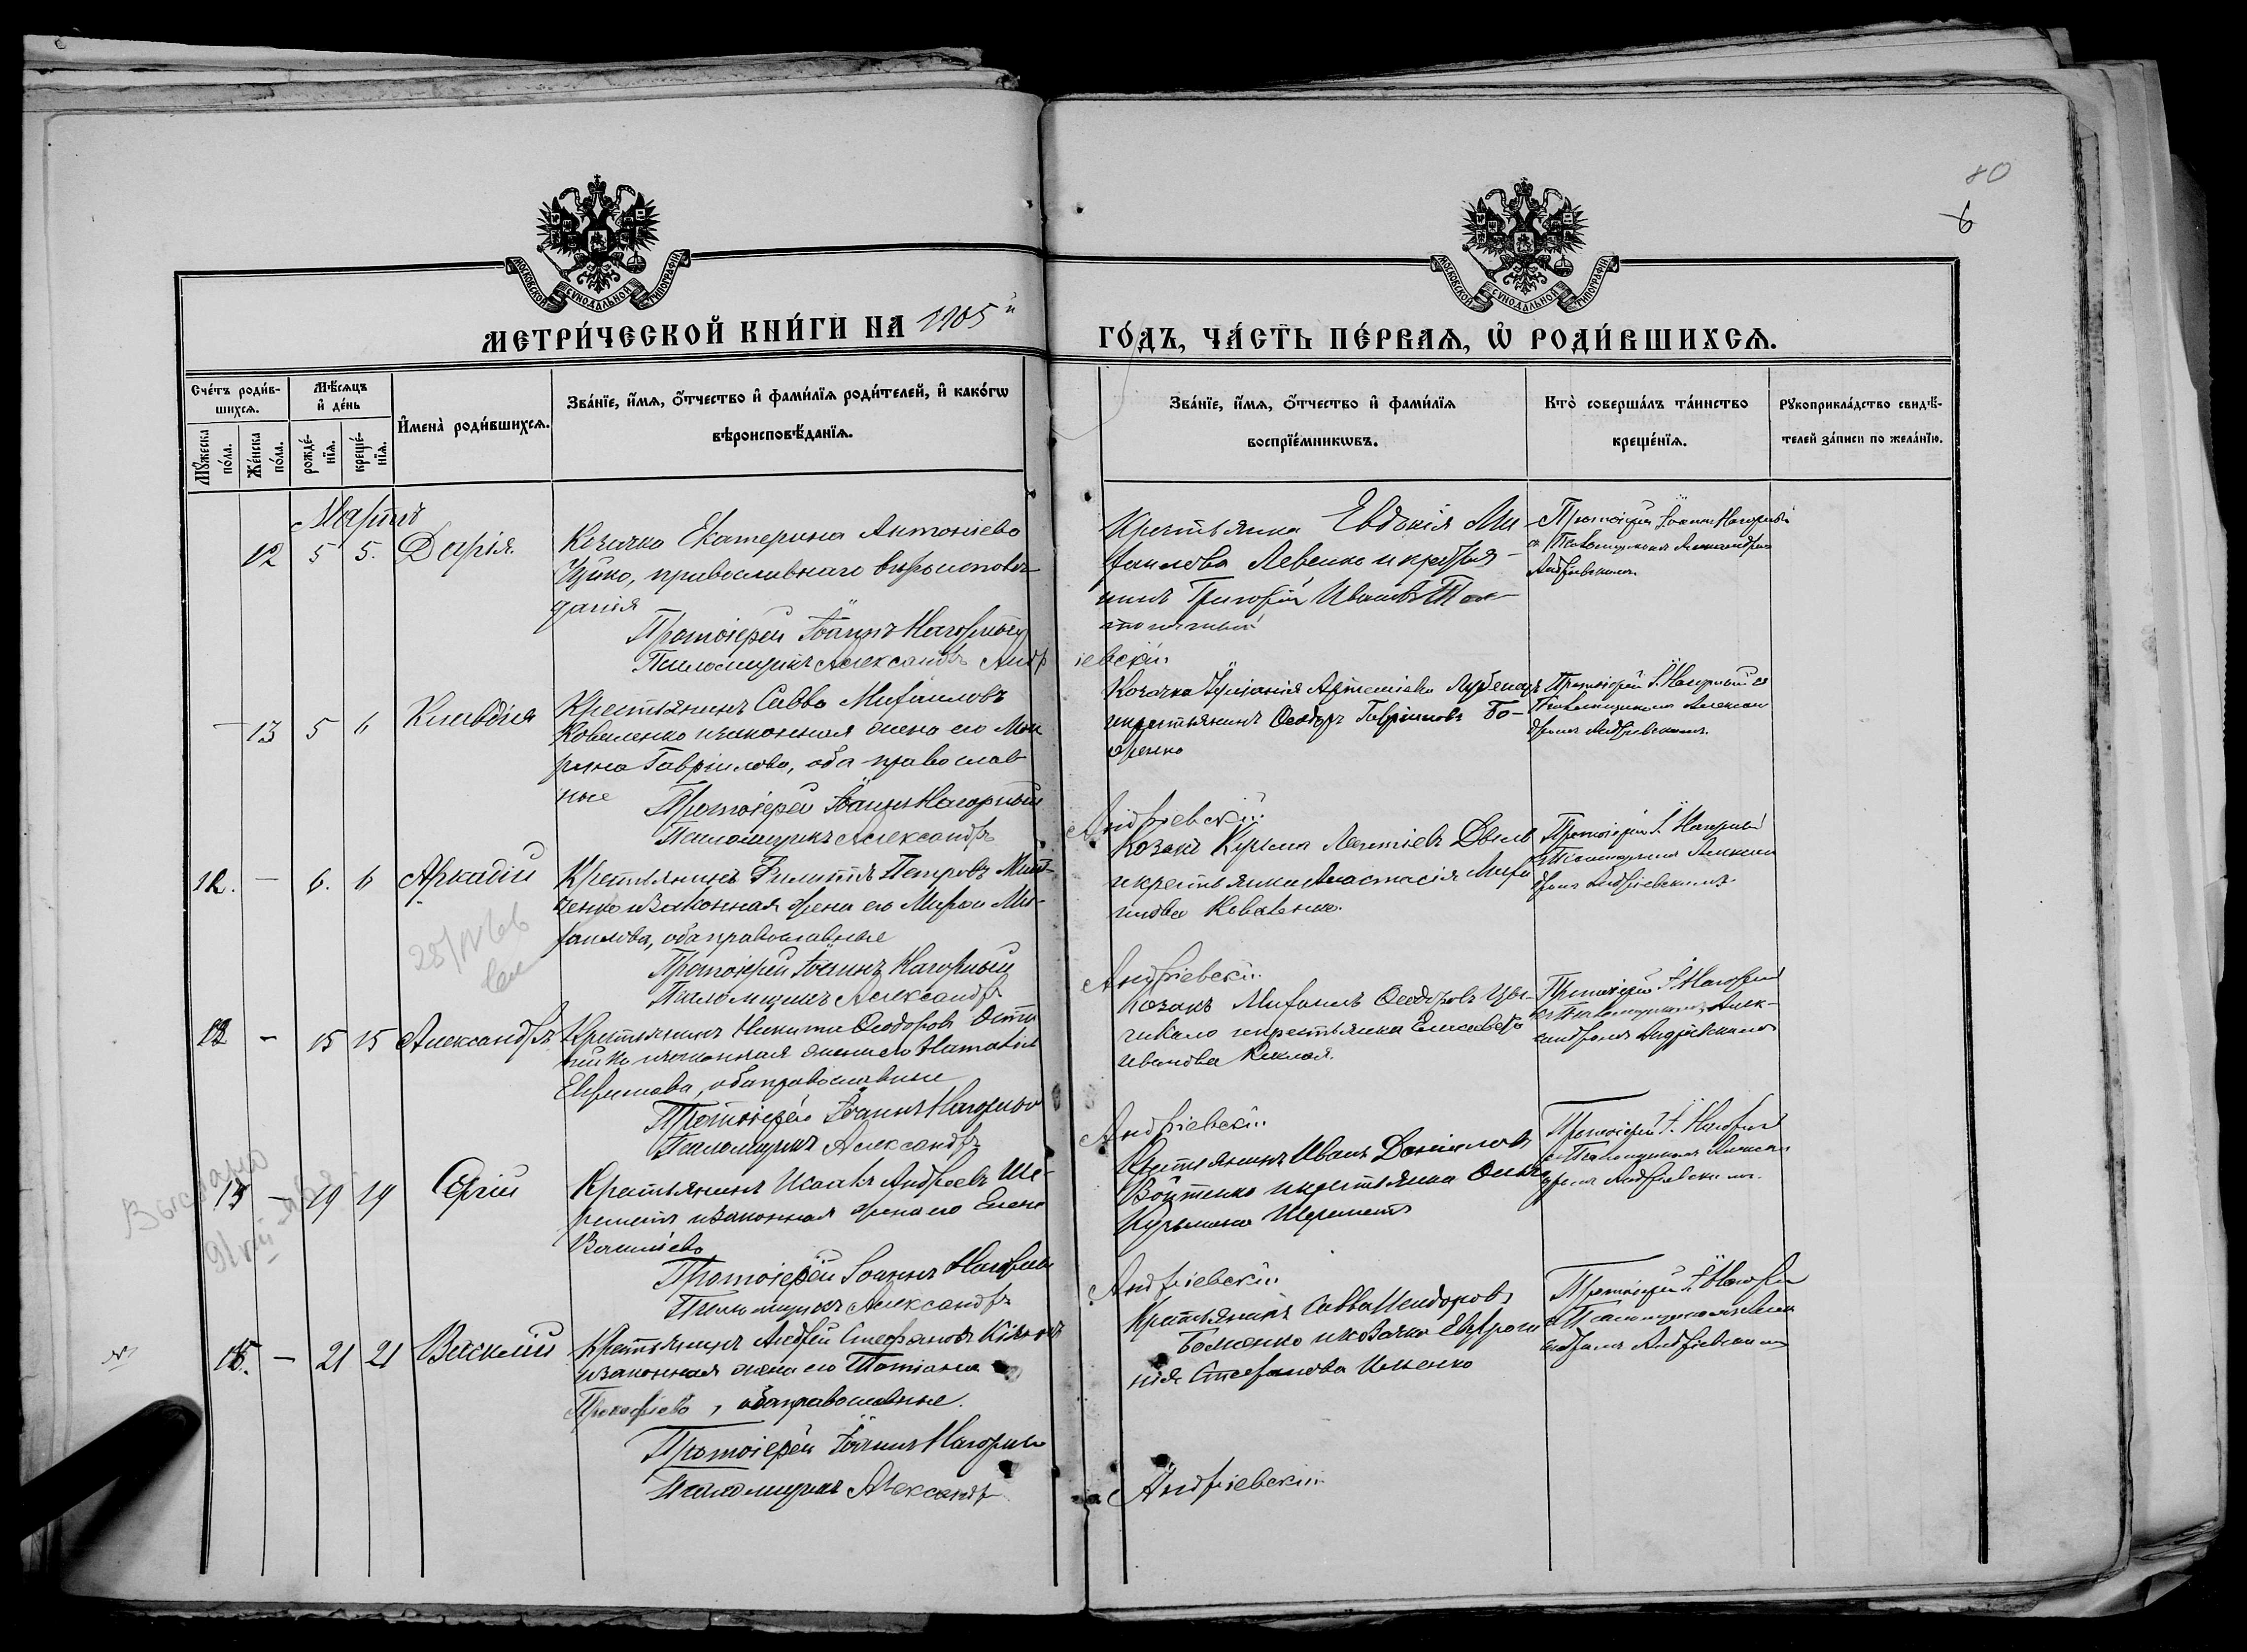 80
6
МОСКОВСКОЙ СѴНОДАЛЬНОЙ ТИПОГРАФІИ
МОСКОВСКОЙ СѴНОДАЛЬНОЙ ТИПОГРАФІИ
МЕТРИ́ЧЕСКОЙ КНИ́ГИ НА 1905 й
ГО́ДЪ, ЧА́СТЬ ПЕ́РВАѦ, Ѡ҆ РОДИ́ВШИХСѦ.
Сче́тъ роди́в-
шихсѧ.
Мꙋ́жеска по́ла.
Же́нска по́ла.
Мѣ́сѧцъ
и҆ де́нь
рожде́-
нїѧ.
креще́-
нїѧ.
И҆мена̀ роди́вшихсѧ.
Зва́нїе, и҆́мѧ, ѻ҆́тчество и҆ фами́лїѧ роди́телей, и҆ како́гѡ
вѣроисповѣ́данїѧ.
Зва́нїе, и҆́мѧ, ѻ҆́тчество и҆ фами́лїѧ
воспрїе́мникѡвъ.
Кто̀ соверша́лъ та́инство
креще́нїѧ.
Рꙋкоприкла́дство свидѣ́-
телей за́писи по жела́нїю.
Мартъ
12 5 5. Дарія.
Козачка Екатерина Антоніева
православнаго вѣроисповѣ-
данія
Протоіерей Іоаннъ Нагорный
Псаломщикъ Александръ Андріевскій
Крестьянка Евдокія Ми
хаилова Левенко и крестья-
нинъ Григорій Ивановъ
Протоіерей Іоаннъ Нагорный
съ Псаломщикомъ Александромъ
Андріевскимъ
— 13 5 6 Клавдія
Крестьянинъ Савва Михаиловъ
Коваленко и законная жена его Мок
рина Гавріилова, оба православ
ные
Протоіерей Іоаннъ Нагорный
Псаломщикъ Александръ Андріевскій
Козачка Артеміева
и крестьянинъ Ѳеодоръ Гавріиловъ Бо-
Протоіерей І. Нагорный съ
Псаломщикомъ Алексан
дромъ Андріевскимъ
12. — 6. 6 Аркадій
Крестьянинъ Филиппъ Петровъ
ченко и законная жена его Марѳа Ми-
хаилова, оба православные
Протоіерей Іоаннъ Нагорный
Псаломщикъ Александръ Андріевскій
Козакъ Леонтіевъ
и крестьянка Анастасія Миха
илова Коваленко.
Протоіерей І. Нагорный
съ Псаломщикомъ Алексан
дромъ Андріевскимъ
— 15 15 Александръ
Крестьянинъ Никита Ѳеодоровъ
и законная жена его Наталія
Ефимова, оба православные
Протоіерей Іоаннъ Нагорный
Псаломщикъ Александръ Андріевскій
Козакъ Михаилъ Ѳеодоровъ
и крестьянка Елисавета
Иванова
Протоіерей І. Нагорный
съ Псаломщикомъ Алек-
сандромъ Андріевскимъ
Выслано
— 19 19 Сергій
Крестьянинъ Исаакъ Андреевъ Ше-
реметъ и законная жена его Елена
Василіева
Протоіерей Іоаннъ Нагорный
Псаломщикъ Александръ Андріевскій
Крестьянинъ Иванъ Даніиловъ
Войтенко и крестьянка Ольга
Кузьмина Шереметъ
Протоіерей І. Нагорный
съ Псаломщикомъ Алексан
дромъ Андріевскимъ
15. — 21 21 Василій
Крестьянинъ Андрей Стефановъ
и законная жена его Татіана
Прокофіева, оба православные.
Протоіерей Іоаннъ Нагорный
Псаломщикъ Александръ Андріевскій
Крестьянинъ Савва Исидоровъ
и козачка Евфроси
нія Стефанова
Протоіерей І. Нагорный
съ Псаломщикомъ Алек
сандромъ Андріевскимъ